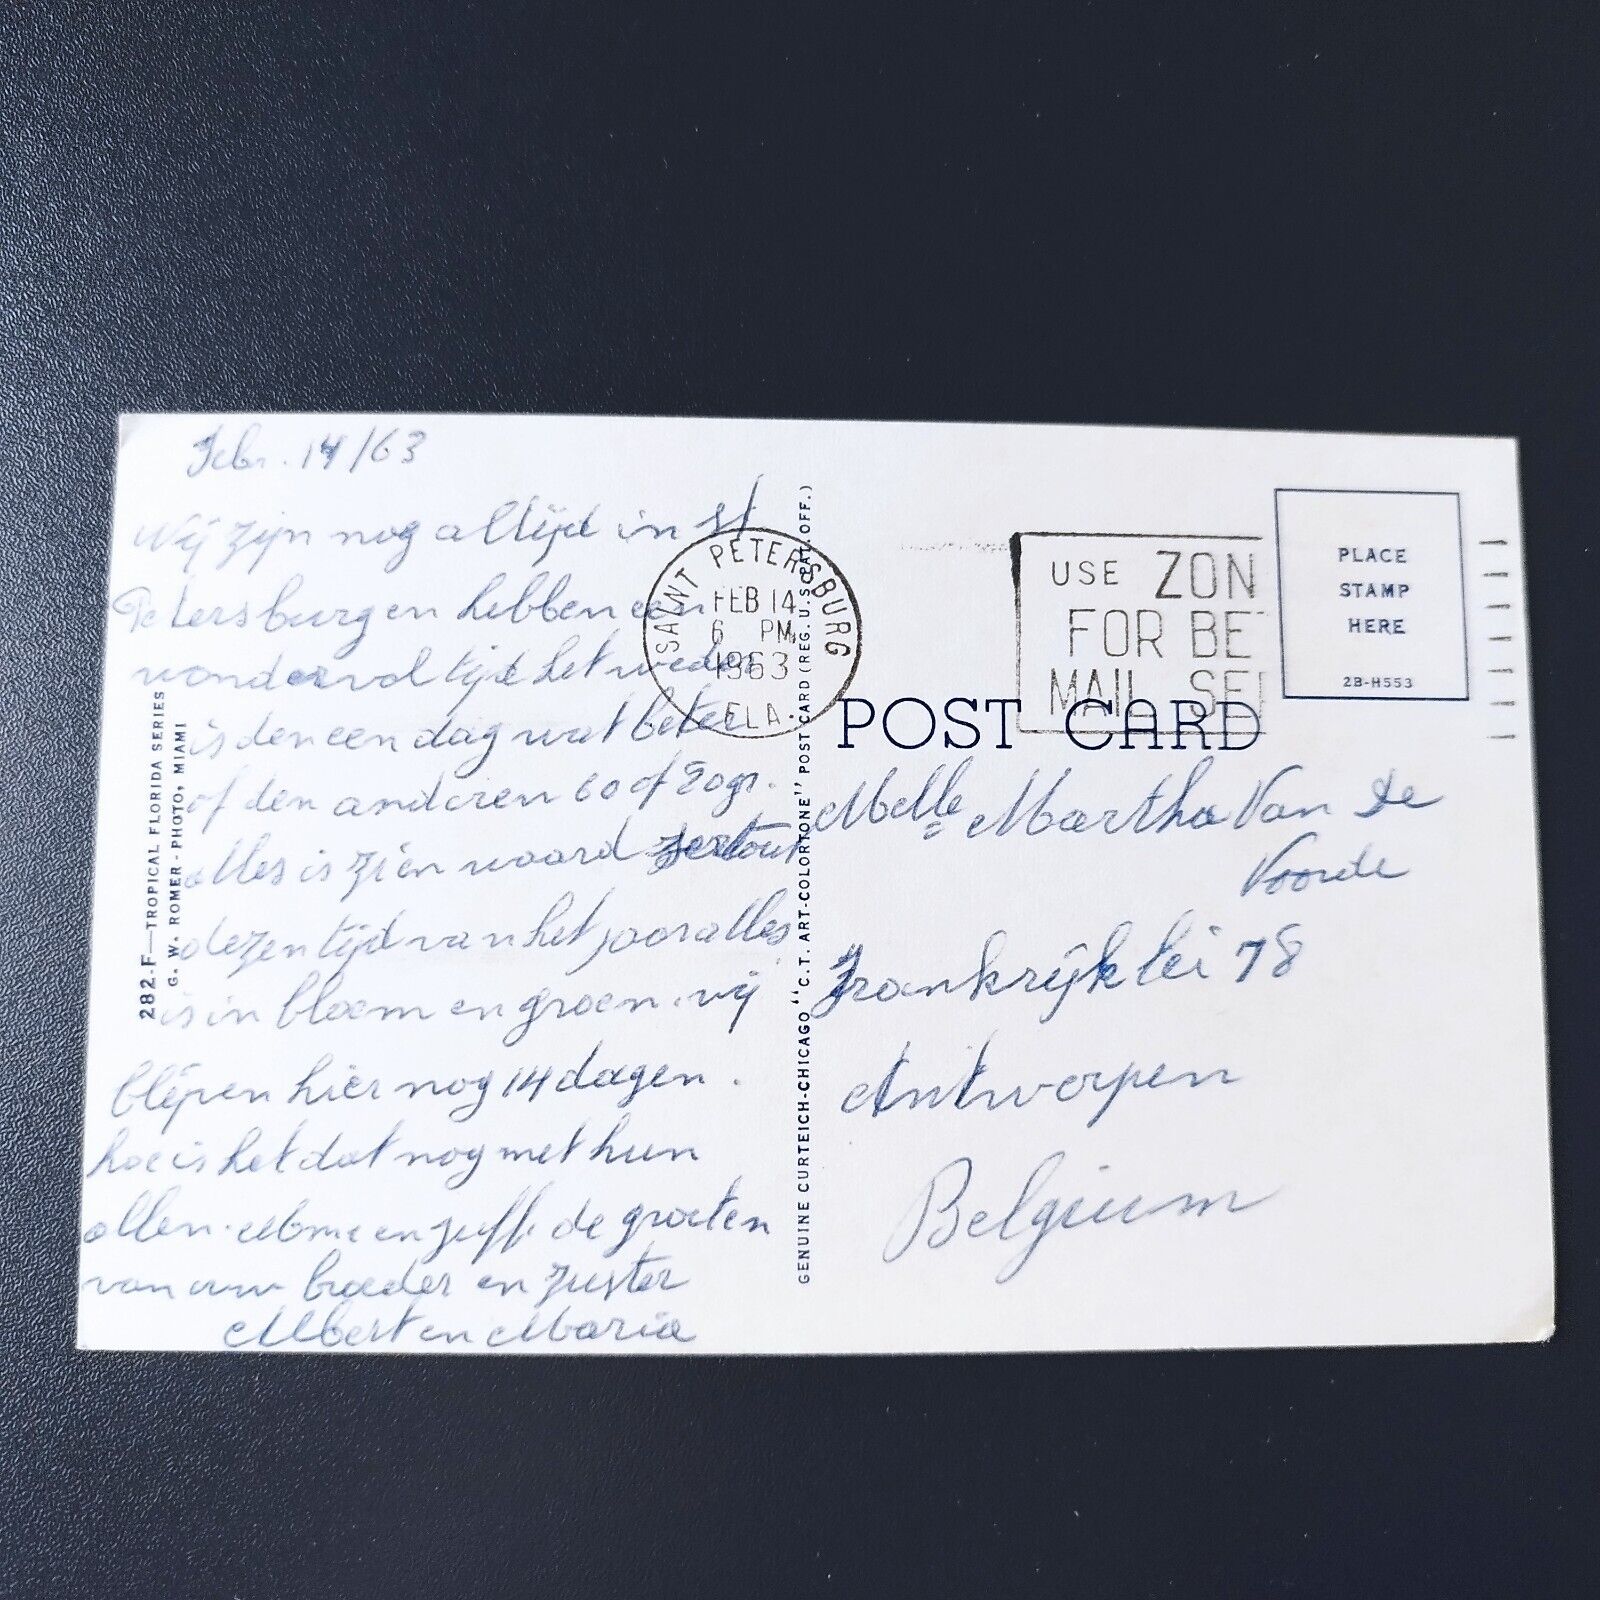 Febr. 14/63
Wij zijn nog altijd in St
Petersburg en hebben een
wondervol tijd het weder
is den een dag wat beter
of den anderen 60 of 80 gr.
alles is zien waard sertout
dezen tijd van het jaar alles
is in bloem en groen. wij
blijven hier nog 14 dagen.
hoe is het dat nog met hun
allen. en de groeten
van uw broeder en zuster
Albert en Maria
282-F—TROPICAL FLORIDA SERIES
G. W. ROMER-PHOTO, MIAMI
SAINT PETERSBURG
FEB 14
6 PM
1963
FLA.
GENUINE CURTEICH-CHICAGO "C.T. ART-COLORTONE" POST CARD (REG. U.S. PAT. OFF.)
USE ZON
FOR BET
MAIL SER
PLACE
STAMP
HERE
2B-H553
POST CARD
Melle Martha Van De
Voorde
Frankrijklei 78
Antwerpen
Belgium